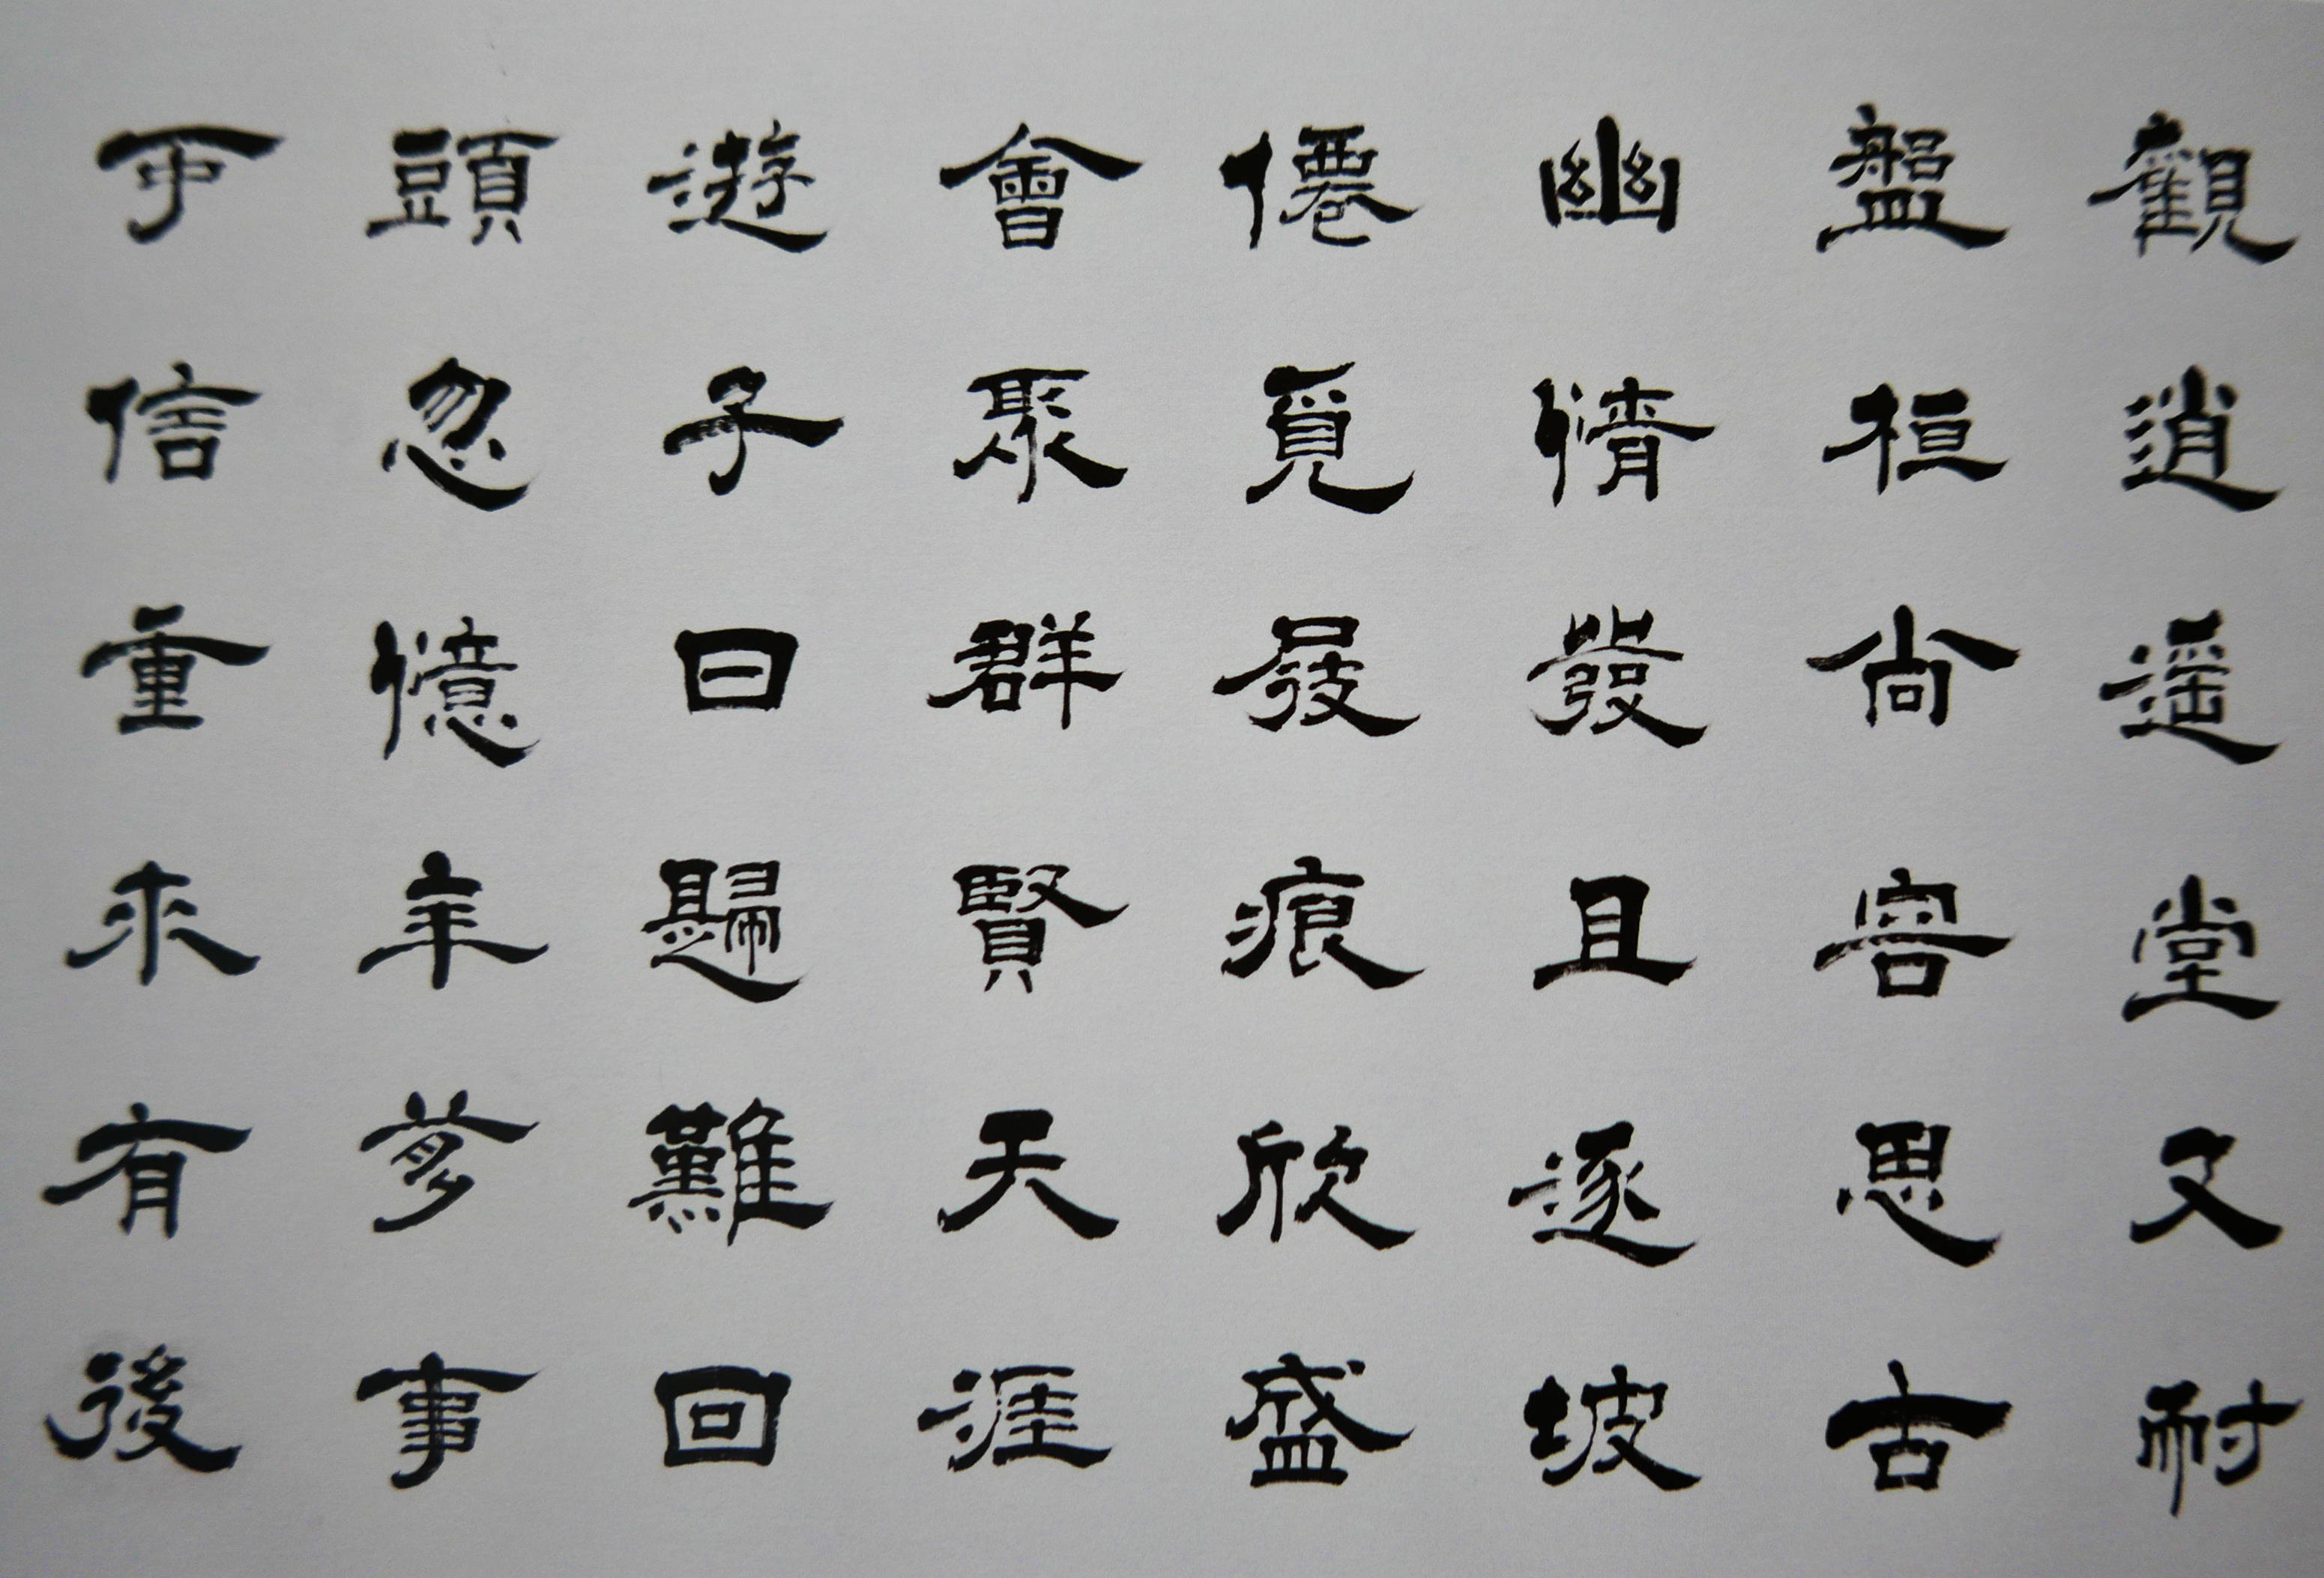 觀逍遥堂又耐
盤桓尚容思古
幽情發且逐坡
僊覓屐痕欣盛
會聚群賢天涯
遊子曰歸難回
頭忽憶年夢事
乎信重來有後